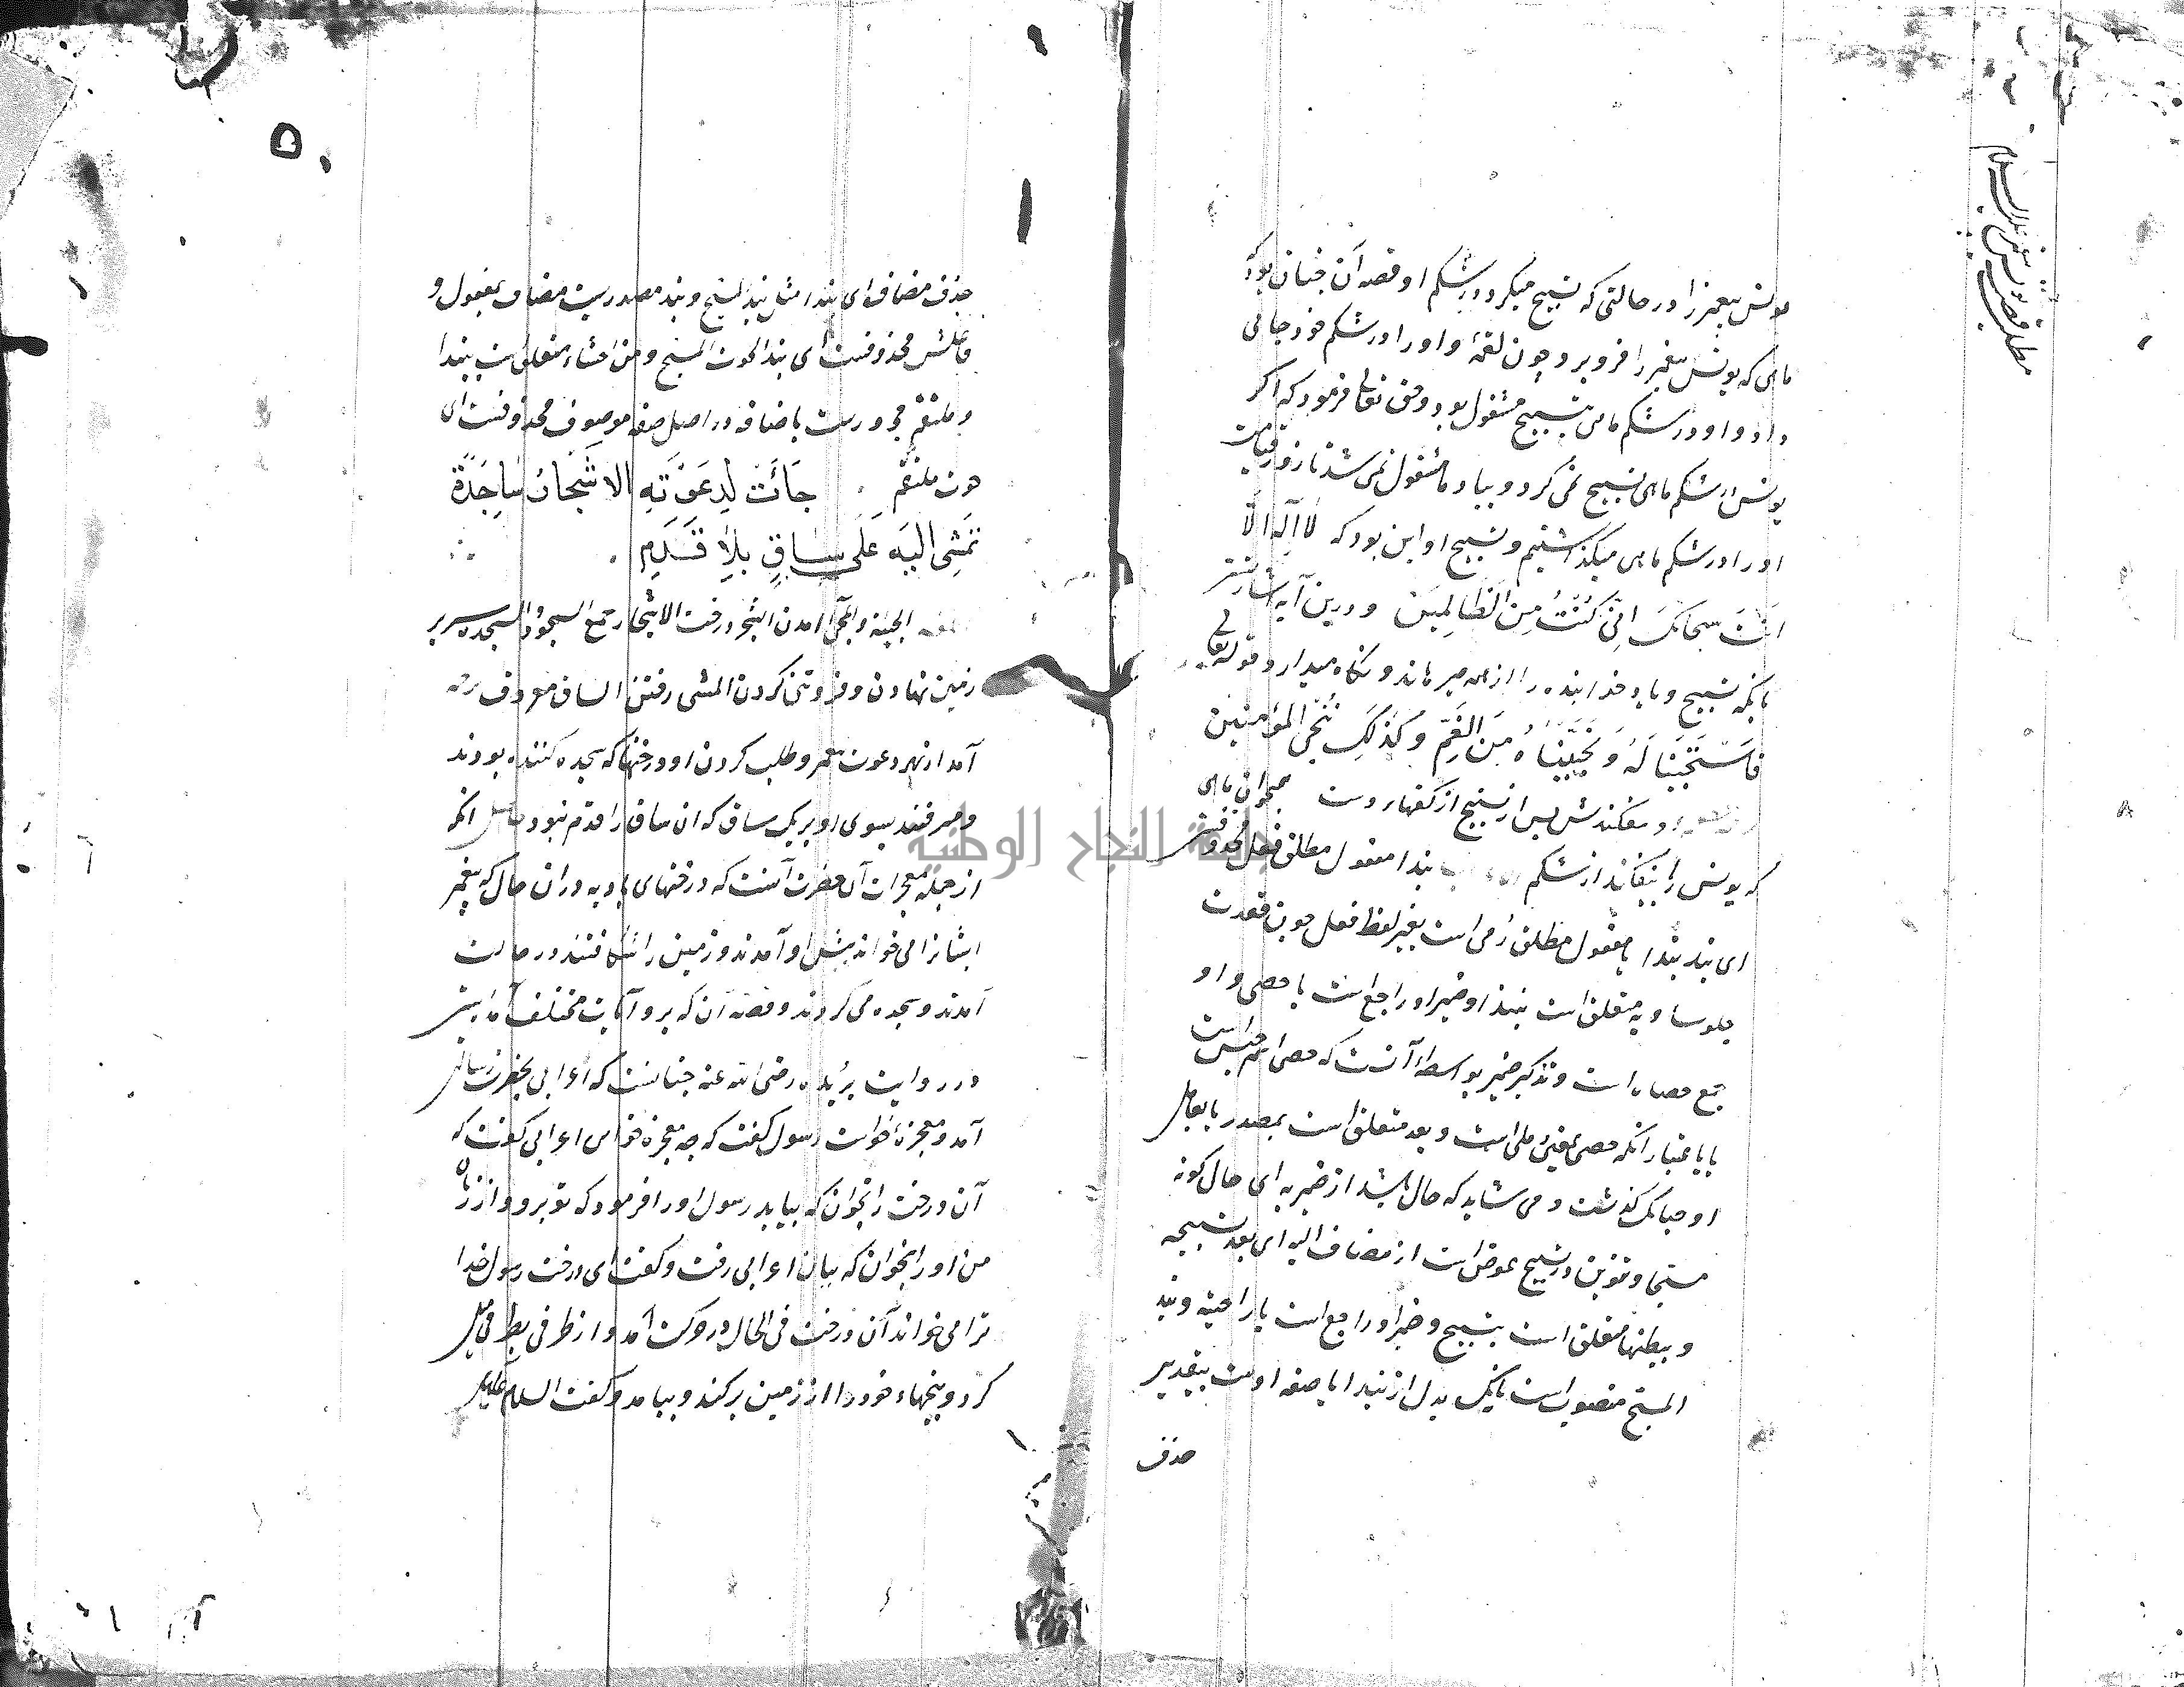 یونس پیغمبر را در حالتی که تسبیح میکرد در شکم او قصه آن چنان بود که
ماهی که یونس پیغمبر را فرو برد چون لقمهٔ و او را در شکم خود جای
داد و او در شکم ماهی بتسبیح مشغول بود و حق تعالی فرمود که اگر
یونس در شکم ماهی تسبیح نمی کرد و بیاد ما مشغول نمی شد تا روز قیامت
او را در شکم ماهی میکذاشتیم و تسبیح او این بود که لا اله الا
انت سبحانک انی کنت من الظالمین و درین آیه اشارتست
بانکه تسبیح و یاد خدا بنده را از همه میرهاند و نکاه میدارد قوله تعالی
فاستجبنا له و نجیناه من الغم و کذلک ننجی المؤمنین
و بیفکندنش پس از تسبیح از کفهاء دست همچون ماهی
که یونس را بیفکند از شکم نبذا مفعول مطلق فعل محذوفست
ای نبذ نبذا یا مفعول مطلق رمی است بغیر لفظ فعل چون قعدت
جلوسا و به متعلق است بنبذا و ضمیر او راجع است با حصی و او
جمع حصاه است و تذکیر ضمیر بواسطه آنست که حصی اسم جنس است
یا باعتبار انکه حصی بمعنی رملی است و بعد متعلق است بمصدر یا بعامل
او چنانک کذشت و می شاید که حال باشد از ضمیر به ای حال کونه
مسبحا و تنوین در تسبیح عوض است از مضاف الیه ای بعد تسبیحه
و ببطنهما متعلق است بتسبیح و ضمیر او راجع است با راحتیه و نبذ
المسبح منصوب است بانک بدل از نبذا یا صفه اوست بتقدیر
حذف
حذف مضاف ای نبذا مثل نبذ المسبح و نبذ مصدریست مضاف بمفعول و
فاعلش محذوفست ای نبذ الحوت المسبح و من احشاء متعلق است بنبذا
و ملتقم مجرورست باضافه در اصل صفه موصوف محذوفست ای
حوت ملتقم جَائَت لِدَعوَتِهِ الاشجارُ ساجِدَةً
تَمشِی الیهِ عَلَی ساقٍ بِلاٰ قَدَمِ
المجیئة والمجئ امدن الشجر درخت الاشجار جمع السجود والسجده سر بر
زمین نهادن و فروتنی کردن المشی رفتن الساق معروف
آمد از بهر دعوت پیغمبر و طلب کردن او درختها که سجده کننده بودند
و میرفتند بسوی او بر یک ساق که ان ساق را قدم نبود حاصل انکه
از جمله معجزات آن حضرت آنست که درختهای بادیه دران حال که پیغمبر
ایشانرا می خواند پیش او آمدند و زمین را شکافتند در حالت
آمدند و سجده می کردند و قصه ان که بروآیات مختلف آمد
در روایت بریده رضی الله عنه چنانست که اعرابی بحضرت رسالت
آمد و معجزهٔ خواست رسول کفت که چه معجزه خواهی اعرابی کفت که
آن درخت را بخوان که بیاید رسول او را فرمود که تو برو و از زبان
من او را بخوان که بیا ان اعرابی رفت و کفت ای درخت رسول خدا
ترا می خواند آن درخت فی الحال در حرکت آمد و از طرفی بطرفی میل
کرد و بیخهاء خود را از زمین برکند و بیامد و کفت السلام علیک